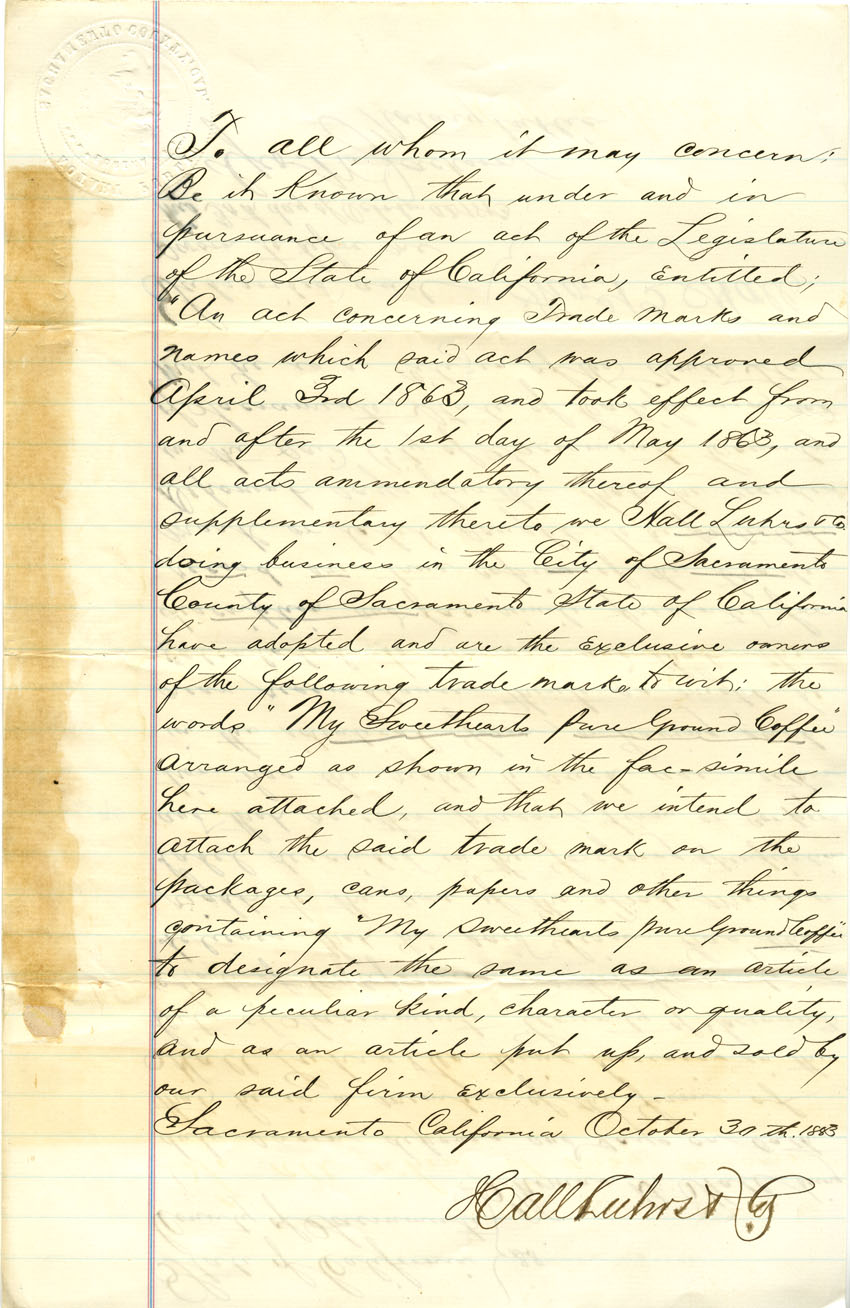 To all whom it may concern:
Be it Known that under and in
pursuance of an act of the Legislature
of the State of California, Entitled;
"An act concerning Trade marks and
names which said act was approved
April 3rd 1863, and took effect from
and after the 1st day of May 1863, and
all acts ammendatory thereof and
supplementary thereto we Hall Luhrs & Co.
doing business in the City of Sacramento
County of Sacramento State of California
have adopted and are the Exclusive owners
of the following trade mark to wit: the
words "My Sweethearts Pure Ground Coffee"
arranged as shown in the fac-simile
here attached, and that we intend to
attach the said trade mark on the
packages, cans, papers and other things
containing "My Sweethearts Pure Ground Coffee"
to designate the same as an article
of a peculiar kind, character or quality,
and as an article put up, and sold by
our said firm exclusively -
Sacramento California October 30th. 1883
Hall Luhrs & Co